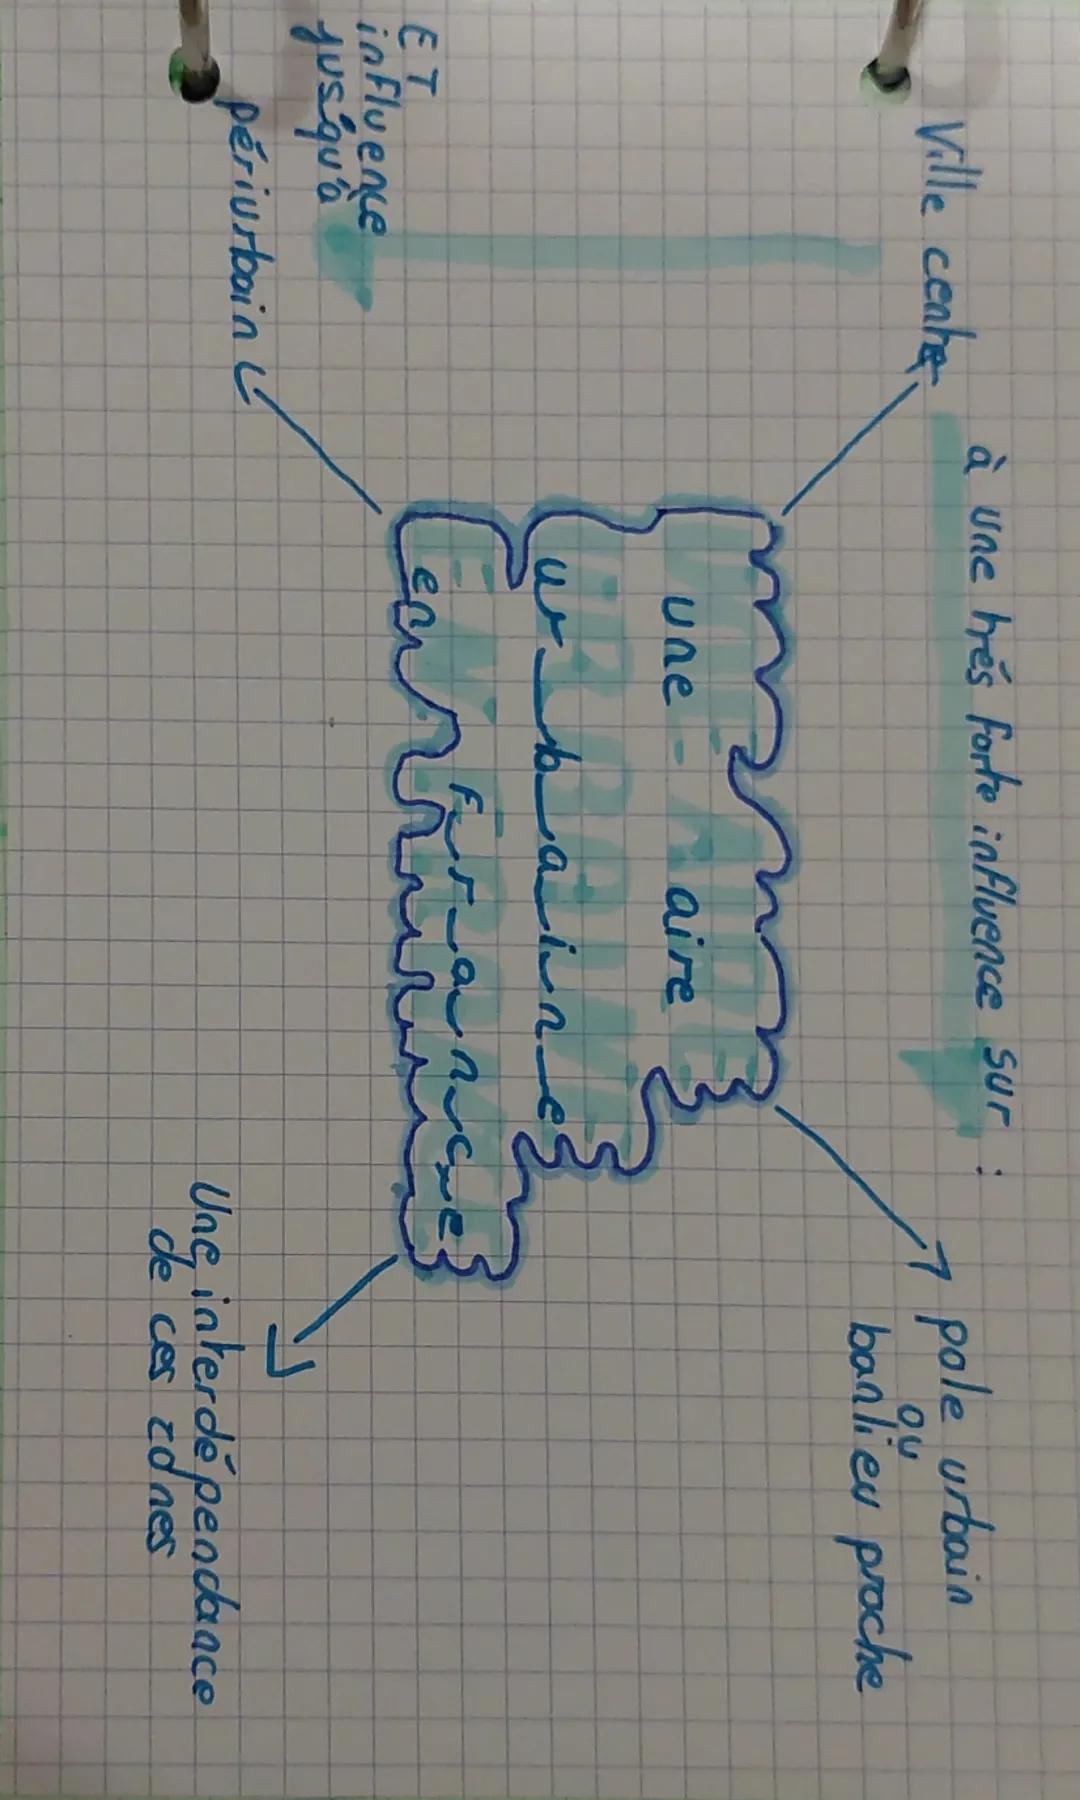 à une trés forte influence sur :
Ville centre
pole urbain
ou
banlieu proche
une aire
urbaine
en france
ET
influence
jusqu'à
périurbain
Une interdépendance
de ces zones